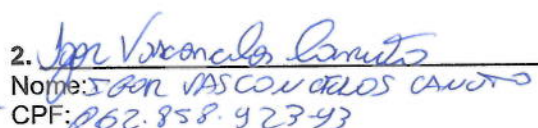 2. Igor Vasconcelos Canuto
Nome: IGOR VASCONCELOS CANUTO
CPF: 062.858.923-93